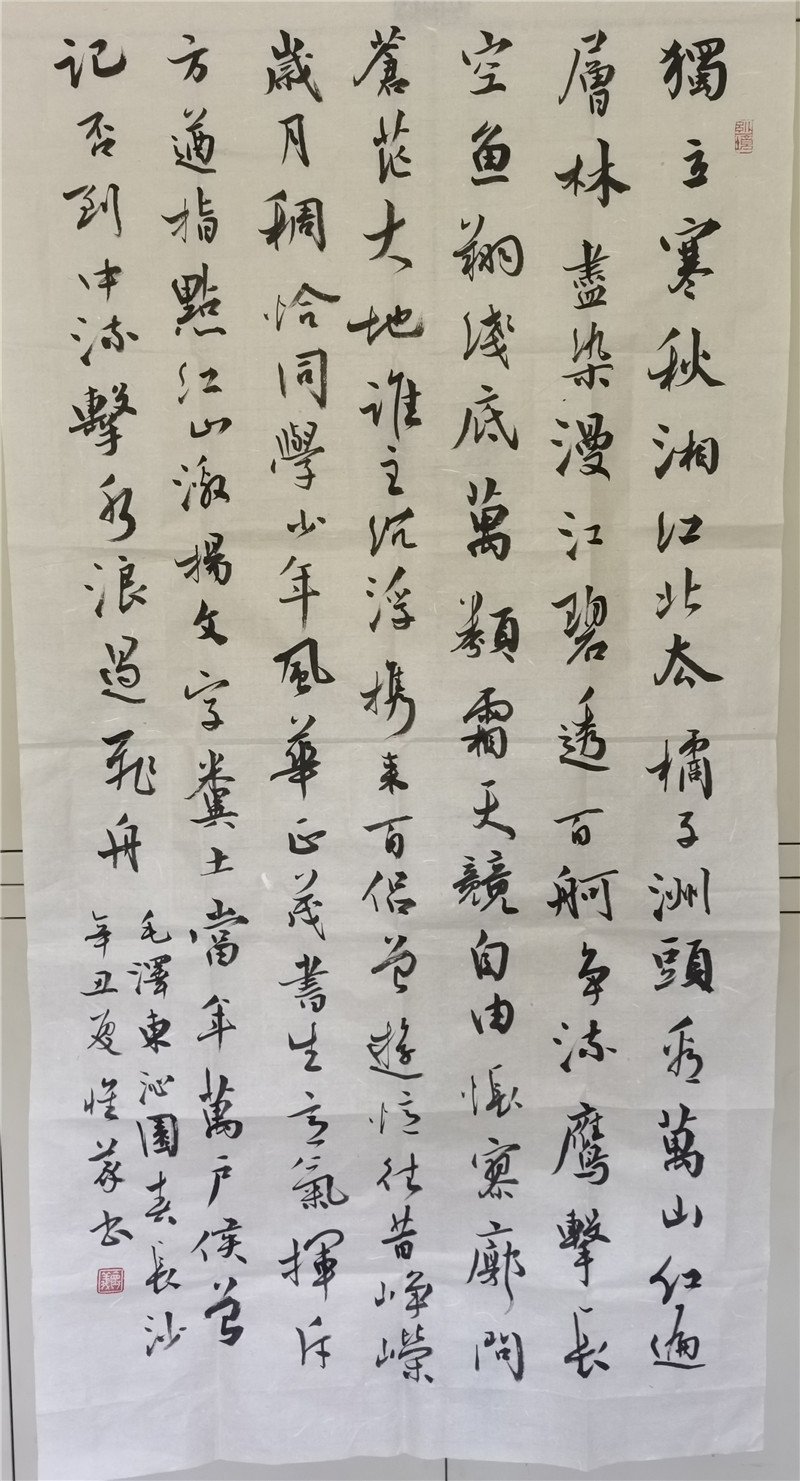 獨立寒秋湘江北去橘子洲頭看萬山紅遍
層林盡染漫江碧透百舸争流鷹擊長
空魚翔淺底萬類霜天競自由悵寥廓問
蒼茫大地誰主沉浮携來百侶曾遊憶往昔崢嶸
歲月稠恰同學少年風華正茂書生意氣揮斥
方遒指點江山激揚文字糞土當年萬户侯曾
記否到中流擊水浪遏飛舟
毛澤東沁園春長沙
辛丑夏惟書